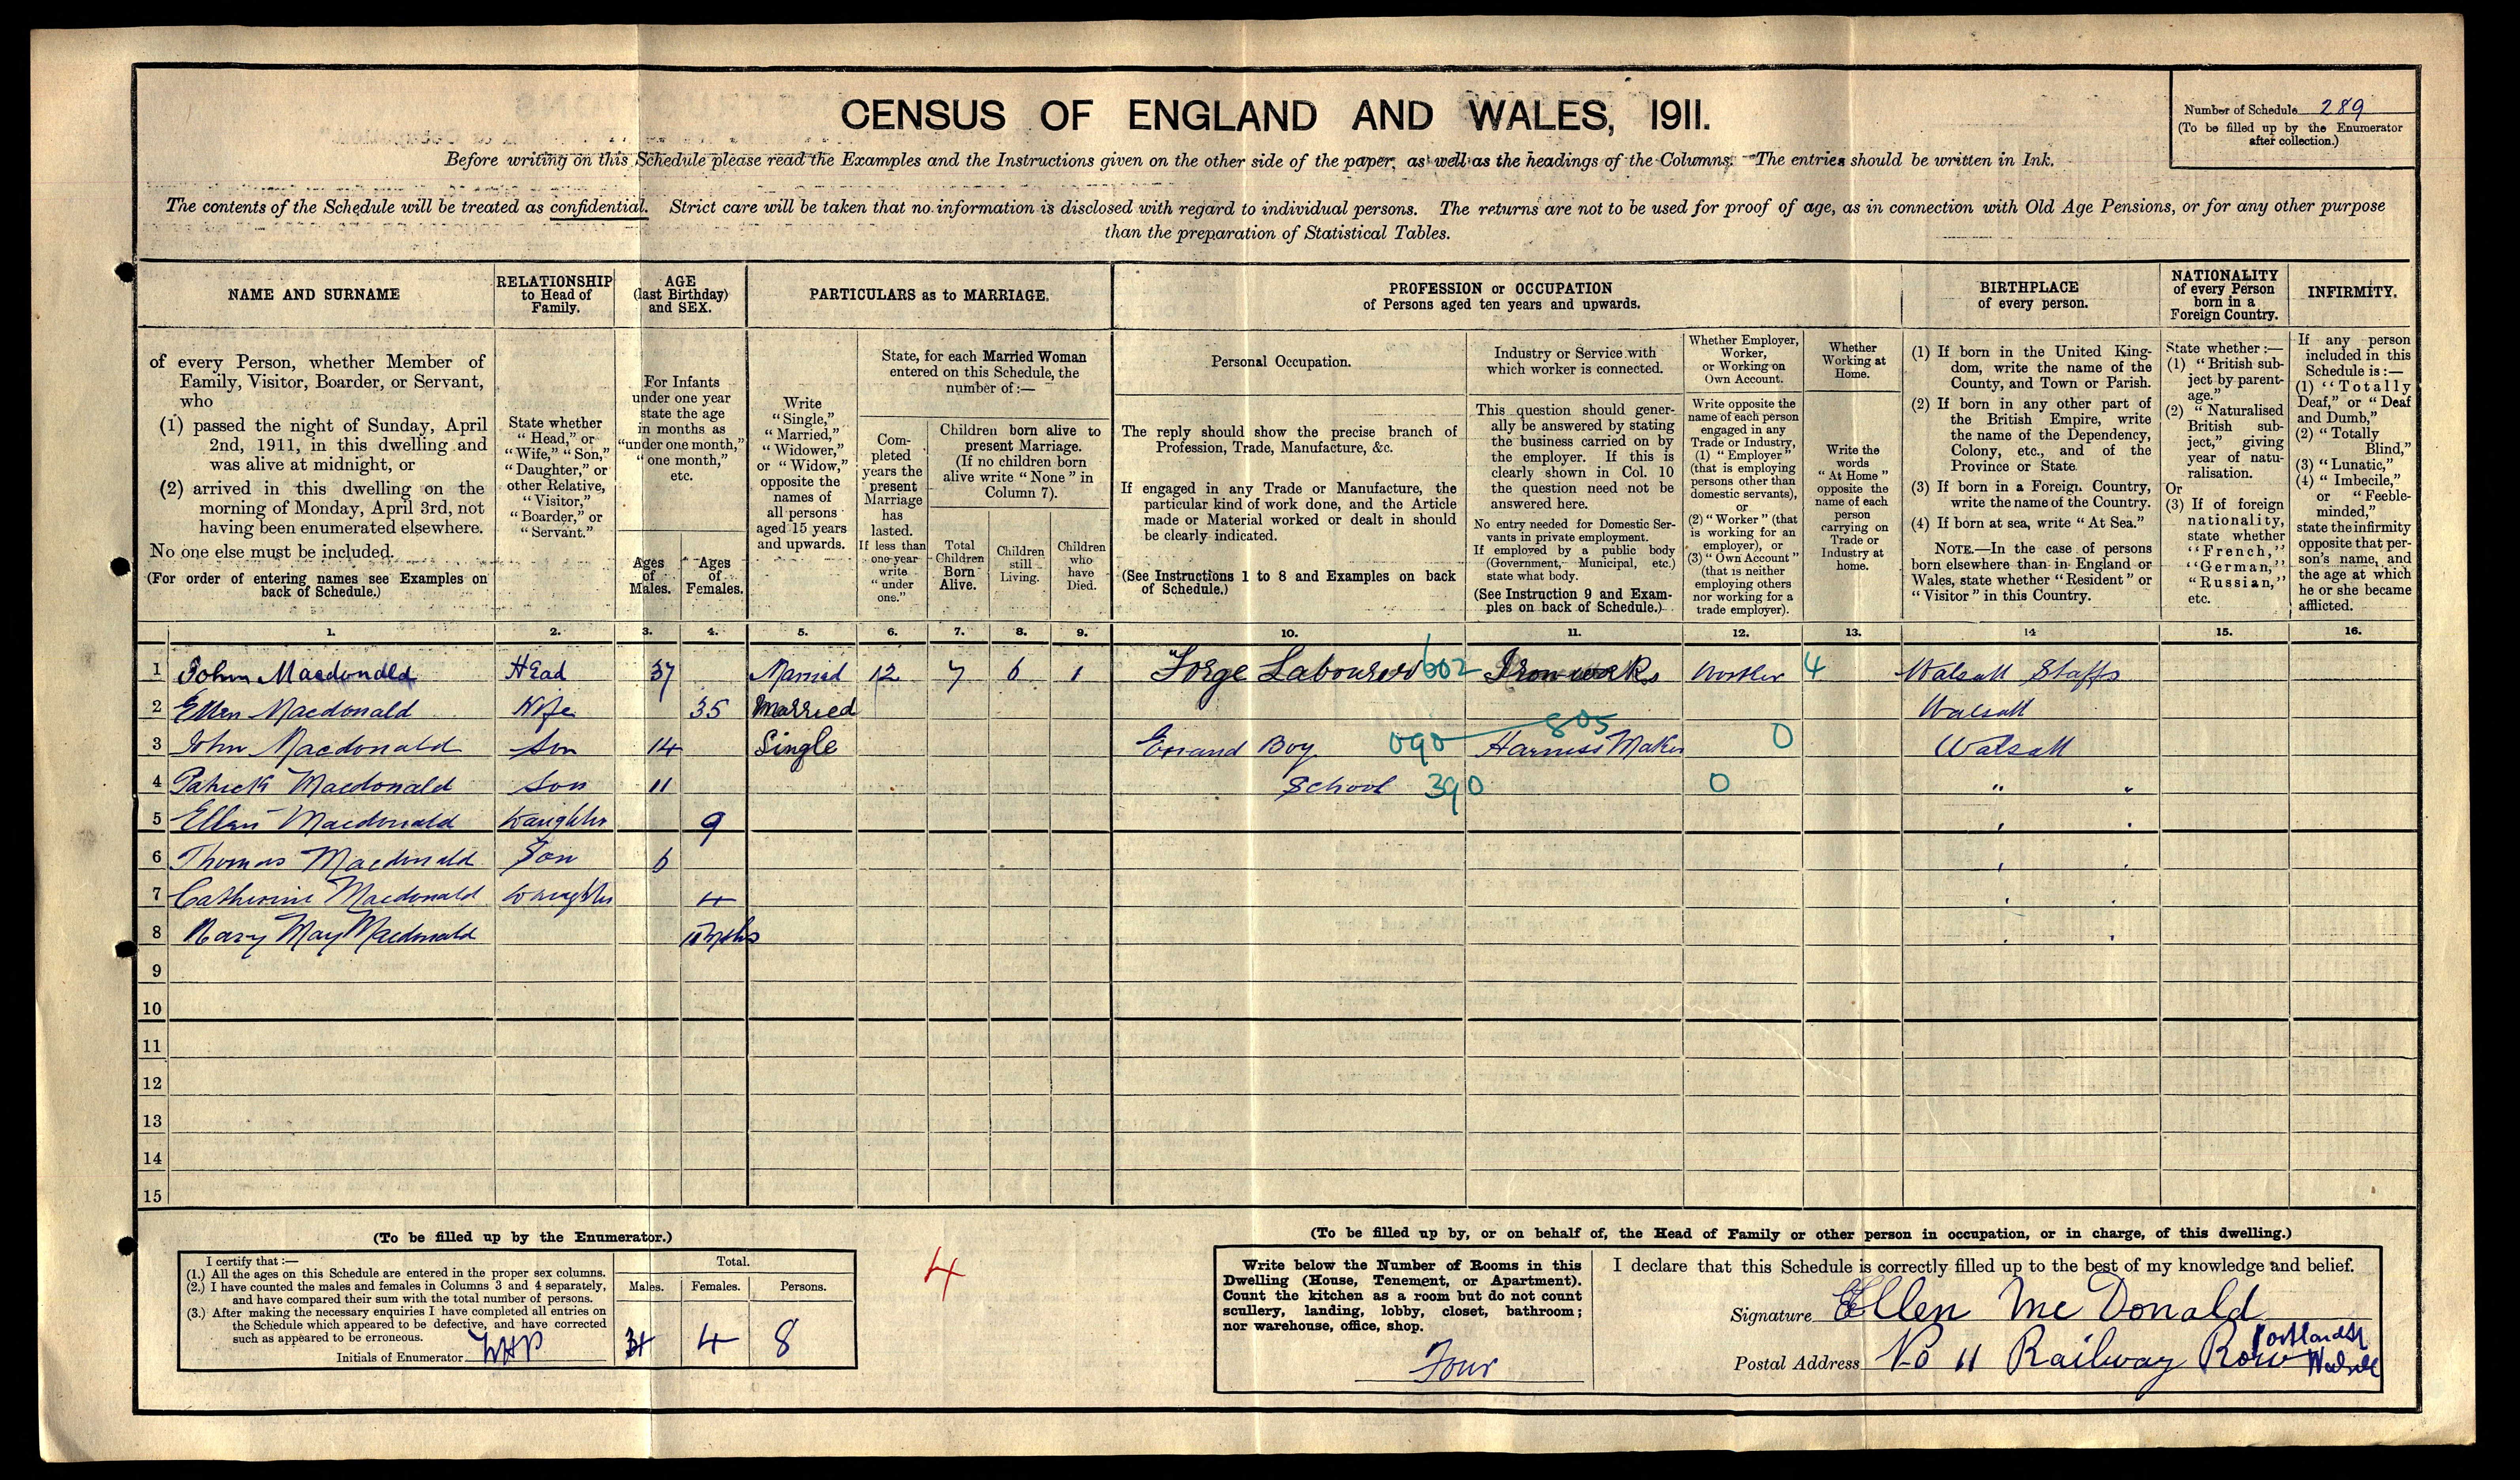 CENSUS OF ENGLAND AND WALES, 1911.
Number of Schedule 289
(To be filled up by the Enumerator
after collection.)
Before writing on this Schedule please read the Examples and the Instructions given on the other side of the paper, as well as the headings of the Columns. The entries should be written in Ink.
The contents of the Schedule will be treated as confidential. Strict care will be taken that no information is disclosed with regard to individual persons. The returns are not to be used for proof of age, as in connection with Old Age Pensions, or for any other purpose
than the preparation of Statistical Tables.
NAME AND SURNAME
of every Person, whether Member of
Family, Visitor, Boarder, or Servant,
who
(1) passed the night of Sunday, April
2nd, 1911, in this dwelling and
was alive at midnight, or
(2) arrived in this dwelling on the
morning of Monday, April 3rd, not
having been enumerated elsewhere.
No one else must be included.
(For order of entering names see Examples on
back of Schedule.)
RELATIONSHIP
to Head of
Family.
State whether
"Head," or
"Wife," "Son,"
"Daughter," or
other Relative,
"Visitor,"
"Boarder," or
"Servant."
AGE
(last Birthday)
and SEX.
For Infants
under one year
state the age
in months as
"under one month,"
"one month,"
etc.
Ages
of
Males.
Ages
of
Females.
PARTICULARS as to MARRIAGE.
Write
"Single,"
"Married,"
"Widower,"
or "Widow,"
opposite the
names of
all persons
aged 15 years
and upwards.
State, for each Married Woman
entered on this Schedule, the
number of:—
Com-
pleted
years the
present
Marriage
has
lasted.
If less than
one year
write
"under
one."
Children born alive to
present Marriage.
(If no children born
alive write "None" in
Column 7).
Total
Children
Born
Alive.
Children
still
Living.
Children
who
have
Died.
PROFESSION or OCCUPATION
of Persons aged ten years and upwards.
Personal Occupation.
The reply should show the precise branch of
Profession, Trade, Manufacture, &c.
If engaged in any Trade or Manufacture, the
particular kind of work done, and the Article
made or Material worked or dealt in should
be clearly indicated.
(See Instructions 1 to 8 and Examples on back
of Schedule.)
Industry or Service with
which worker is connected.
This question should gener-
ally be answered by stating
the business carried on by
the employer. If this is
clearly shown in Col. 10
the question need not be
answered here.
No entry needed for Domestic Ser-
vants in private employment.
If employed by a public body
(Government, Municipal, etc.)
state what body.
(See Instruction 9 and Exam-
ples on back of Schedule.)
Whether Employer,
Worker,
or Working on
Own Account.
Write opposite the
name of each person
engaged in any
Trade or Industry,
(1) "Employer"
(that is employing
persons other than
domestic servants),
or
(2) "Worker" (that
is working for an
employer), or
(3) "Own Account"
(that is neither
employing others
nor working for a
trade employer).
Whether
Working at
Home.
Write the
words
"At Home"
opposite the
name of each
person
carrying on
Trade or
Industry at
home.
BIRTHPLACE
of every person.
(1) If born in the United King-
dom, write the name of the
County, and Town or Parish.
(2) If born in any other part of
the British Empire, write
the name of the Dependency,
Colony, etc., and of the
Province or State.
(3) If born in a Foreign Country,
write the name of the Country.
(4) If born at sea, write "At Sea."
NOTE.—In the case of persons
born elsewhere than in England or
Wales, state whether "Resident" or
"Visitor" in this Country.
NATIONALITY
of every Person
born in a
Foreign Country.
State whether:—
(1) "British sub-
ject by parent-
age."
(2) "Naturalised
British sub-
ject," giving
year of natu-
ralisation.
Or
(3) If of foreign
nationality,
state whether
"French,"
"German,"
"Russian,"
etc.
INFIRMITY.
If any person
included in this
Schedule is:—
(1) "Totally
Deaf," or "Deaf
and Dumb,"
(2) "Totally
Blind,"
(3) "Lunatic,"
(4) "Imbecile,"
or "Feeble-
minded,"
state the infirmity
opposite that per-
son's name, and
the age at which
he or she became
afflicted.
1. 2. 3. 4. 5. 6. 7. 8. 9. 10. 11. 12. 13. 14 15. 16.
1 John Macdonald Head 37 Married 12 7 6 1 Forge Labourer 602 Iron works Worker 4 Walsall Staffs
2 Ellen Macdonald Wife 35 Married Walsall
805
3 John Macdonald Son 14 Single Errand Boy 090 Harness Maker 0 Walsall
4 Patrick Macdonald Son 11 School 390 0 " "
5 Ellen Macdonald Daughter 9 " "
6 Thomas Macdonald Son 6 " "
7 Catherine Macdonald Daughter 4 " "
8 Mary May Macdonald 11 Mths " "
9
10
11
12
13
14
15
(To be filled up by the Enumerator.)
I certify that:—
(1.) All the ages on this Schedule are entered in the proper sex columns.
(2.) I have counted the males and females in Columns 3 and 4 separately,
and have compared their sum with the total number of persons.
(3.) After making the necessary enquiries I have completed all entries on
the Schedule which appeared to be defective, and have corrected
such as appeared to be erroneous.
Initials of Enumerator
Total.
Males. Females. Persons.
4 4 8
4
(To be filled up by, or on behalf of, the Head of Family or other person in occupation, or in charge, of this dwelling.)
Write below the Number of Rooms in this
Dwelling (House, Tenement, or Apartment).
Count the kitchen as a room but do not count
scullery, landing, lobby, closet, bathroom;
nor warehouse, office, shop.
Four
I declare that this Schedule is correctly filled up to the best of my knowledge and belief.
Signature Ellen Mc Donald
Postal Address No 11 Railway Row Portland St
Walsall